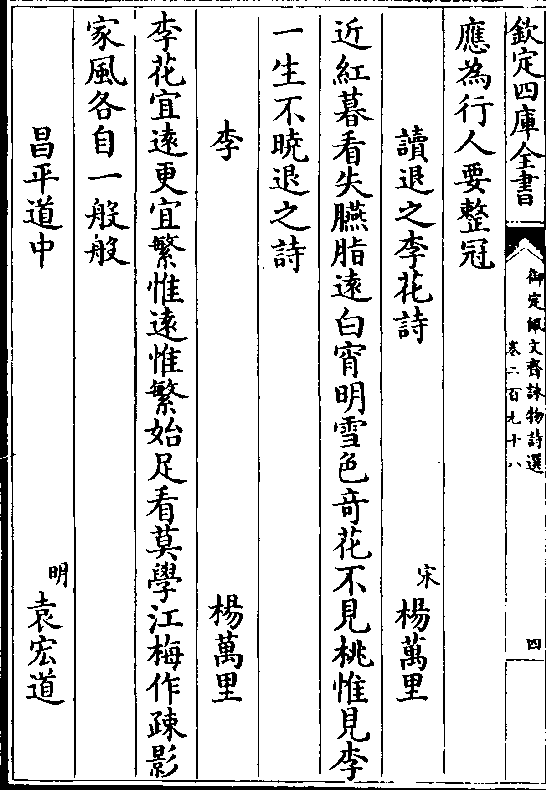 欽定四庫全書
御定佩文齋詠物詩選
卷二百九十八
四
應為行人要整冠
讀退之李花詩
宋 楊萬里
近紅暮看失臙脂遠白宵明雪色竒花不見桃惟見李
一生不曉退之詩
李
楊萬里
李花宜遠更宜繁惟遠惟繁始足看莫學江梅作疎影
家風各自一般般
昌平道中
明 袁宏道